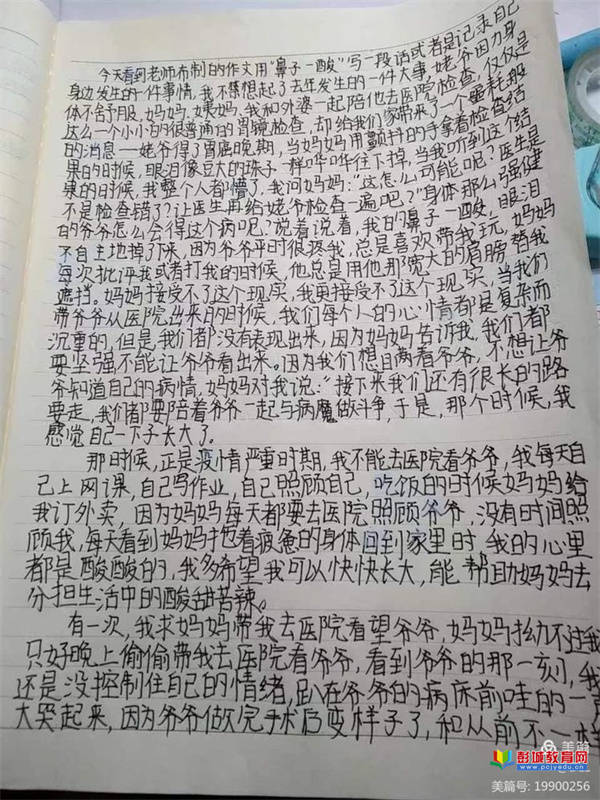 今天看到老师布制的作文用“鼻子一酸”写一段话或者是记录自己
身边发生的一件事情,我不禁想起了去年发生的一件大事,姥爷因为身
体不舒服,妈妈、姨妈、我和外婆一起陪他去医院检查,仅仅是
这么一个小小的很普通的胃镜检查,却给我们家带来了一个噩耗般
的消息——姥爷得了胃癌晚期,当妈妈用颤抖的手拿着检查结
果的时候,眼泪像豆大的珠子一样哗哗往下掉,当我听到这个结
果的时候,我整个人都懵了,我问妈妈:“这怎么可能呢?医生是
不是检查错了?让医生再给姥爷检查一遍吧?”身体那么强健
的爷爷怎么会得这个病呢?说着说着,我的鼻子一酸,眼泪
不自主地掉了下来,因为爷爷平时很疼我,总是喜欢带我玩,妈妈
每次批评我或者打我的时候,他总是用他那宽大的肩膀替我
遮挡。妈妈接受不了这个现实,我更接受不了这个现实,当我们
带爷爷从医院出来的时候,我们每个人的心情都是复杂而
沉重的,但是我们都没有表现出来,因为妈妈告诉我,我们都
要坚强不能让爷爷看出来。因为我们想隐瞒着爷爷,不想让爷
爷知道自己的病情,妈妈对我说:“接下来我们还有很长的路
要走,我们都要陪着爷爷一起与病魔做斗争,于是,那个时候,我
感觉自己一下子长大了。
那时候,正是疫情严重时期,我不能去医院看爷爷,我每天自
己上网课,自己写作业,自己照顾自己,吃饭的时候妈妈给
我订外卖,因为妈妈每天都要去医院照顾爷爷,没有时间照
顾我,每天看到妈妈拖着疲惫的身体回到家里时,我的心里
都是酸酸的,我多希望我可以快快长大,能帮助妈妈去
分担生活中的酸甜苦辣。
有一次,我求妈妈带我去医院看望爷爷,妈妈拗不过我
只好晚上偷偷带我去医院看爷爷,看到爷爷的那一刻,我
还是没控制住自己的情绪,趴在爷爷的病床前哇的一声
大哭起来,因为爷爷做完手术后变样子了,和从前不一样
美篇
彭城教育网
www.pcjyedu.cn
美篇号: 19900256